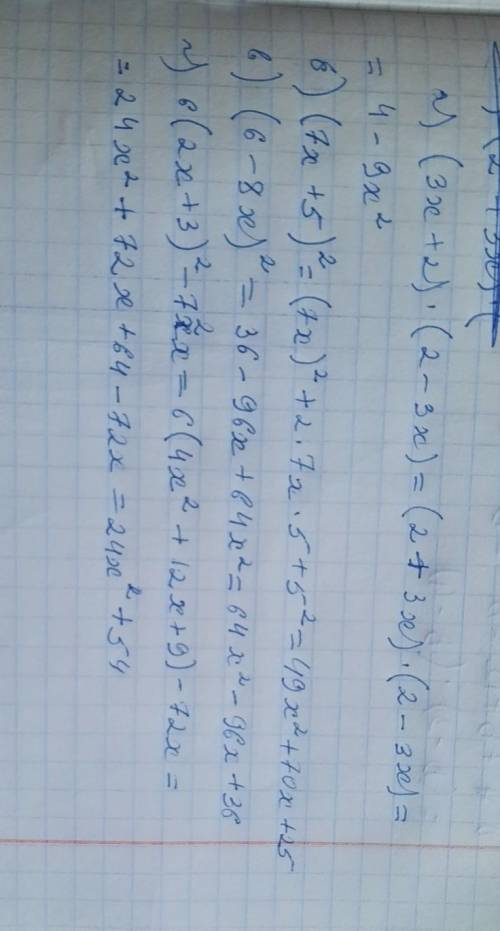 г) (3x+2)·(2-3x)=(2+3x)·(2-3x)=
=4-9x²
б) (7x+5)²=(7x)²+2·7x·5+5²=49x²+70x+25
в) (6-8x)²=36-96x+64x²=64x²-96x+36
г) 6(2x+3)²-72x=6(4x²+12x+9)-72x=
=24x²+72x+64-72x=24x²+54